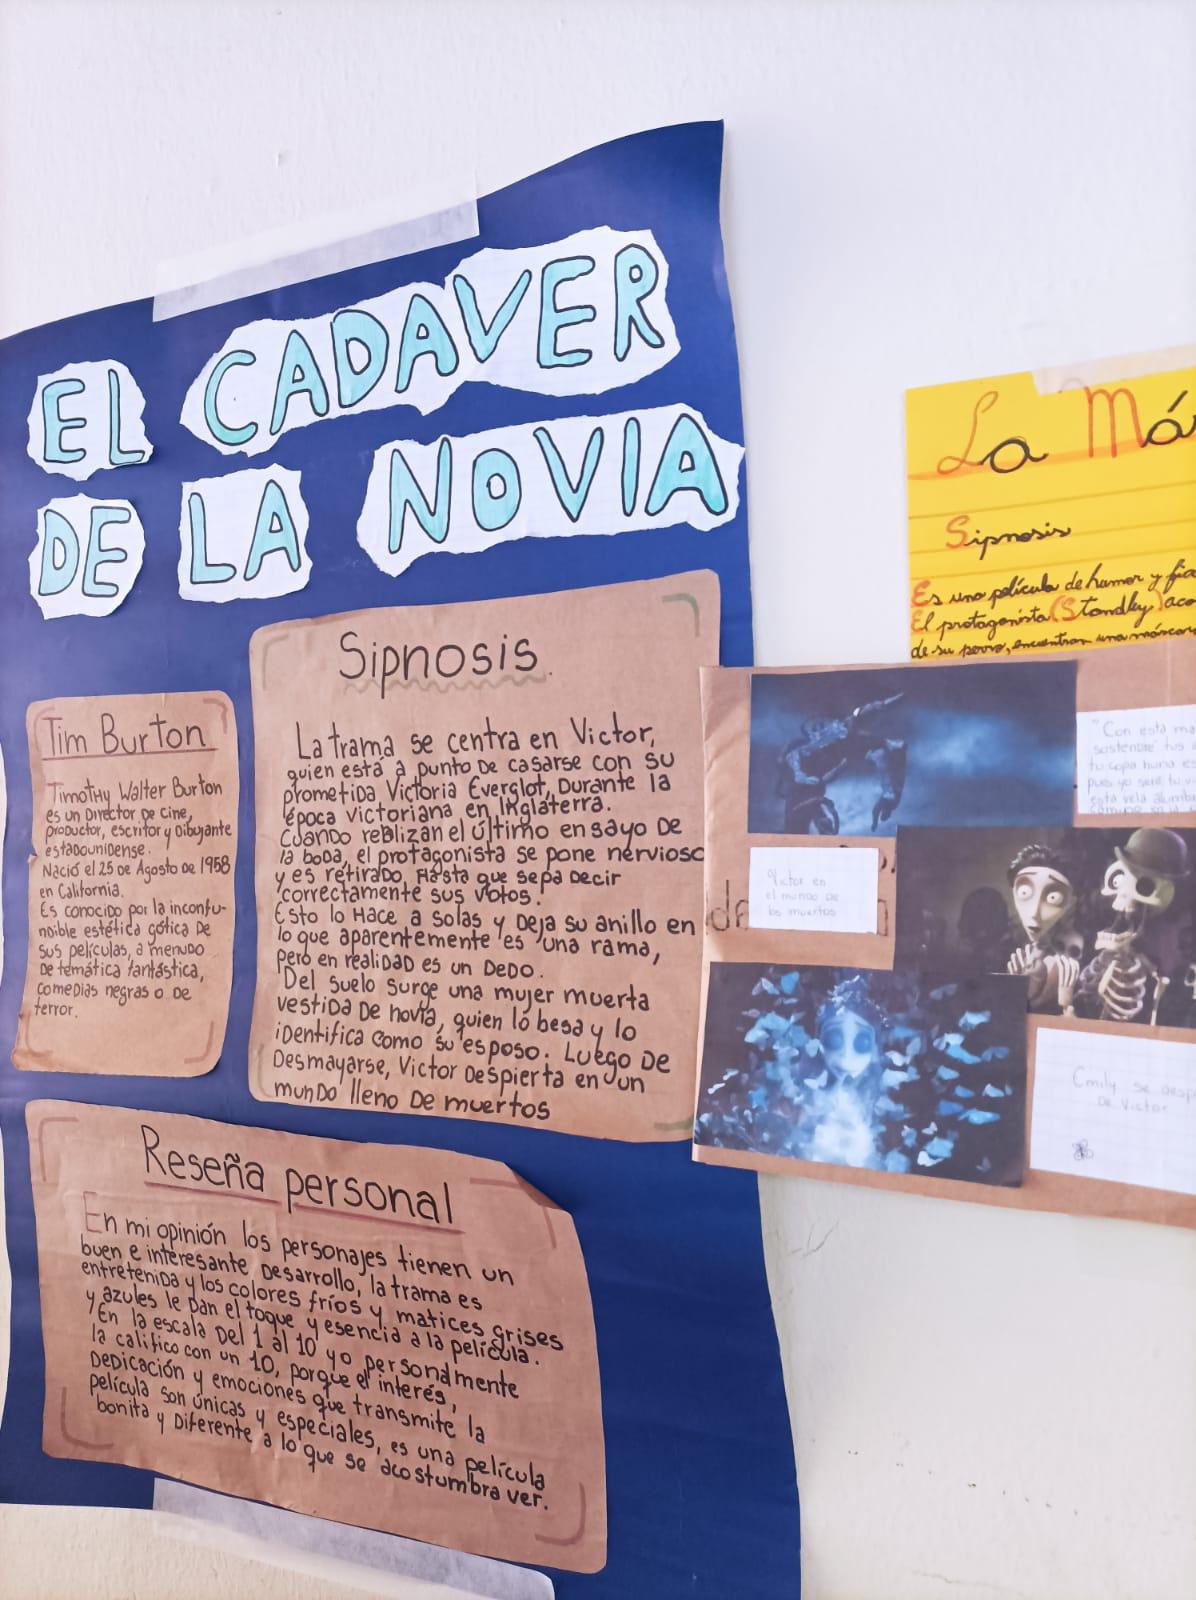 EL CADAVER
DE LA NOVIA
Tim Burton
Timothy Walter Burton
es un Director de cine,
productor, escritor y Dibujante
estadounidense.
Nació el 25 de Agosto de 1958
en California.
Es conocido por la inconfu-
ndible estética gótica de
sus películas, a menudo
de temática fantástica,
comedias negras o de
terror.
Sipnosis.
La trama se centra en Victor,
quien está a punto de casarse con su
prometida Victoria Everglot, Durante la
época victoriana en Inglaterra.
Cuando realizan el último ensayo de
la boda, el protagonista se pone nervioso
y es retirado, Hasta que sepa decir
correctamente sus votos.
Esto lo Hace a solas y deja su anillo en
lo que aparentemente es una rama,
pero en realidad es un dedo.
Del suelo surge una mujer muerta
vestida de novia, quien lo besa y lo
identifica como su esposo. Luego de
Desmayarse, Victor despierta en un
mundo lleno de muertos
Reseña personal
En mi opinión los personajes tienen un
buen e interesante desarrollo, la trama es
entretenida y los colores fríos y matices grises
y azules le dan el toque y esencia a la película.
En la escala del 1 al 10 yo personalmente
la califico con un 10, porque el interés,
Dedicación y emociones que transmite la
película son únicas y especiales, es una película
bonita y diferente a lo que se acostumbra ver.
La Má
Sipnosis
Es una película de humor y
El protagonista (Standley)
de su perro, encuentran una
"Con esta
sostendré tus
tu copa
pues yo seré tu
esta vela
Victor en
el mundo de
los muertos
Emily se
De Victor